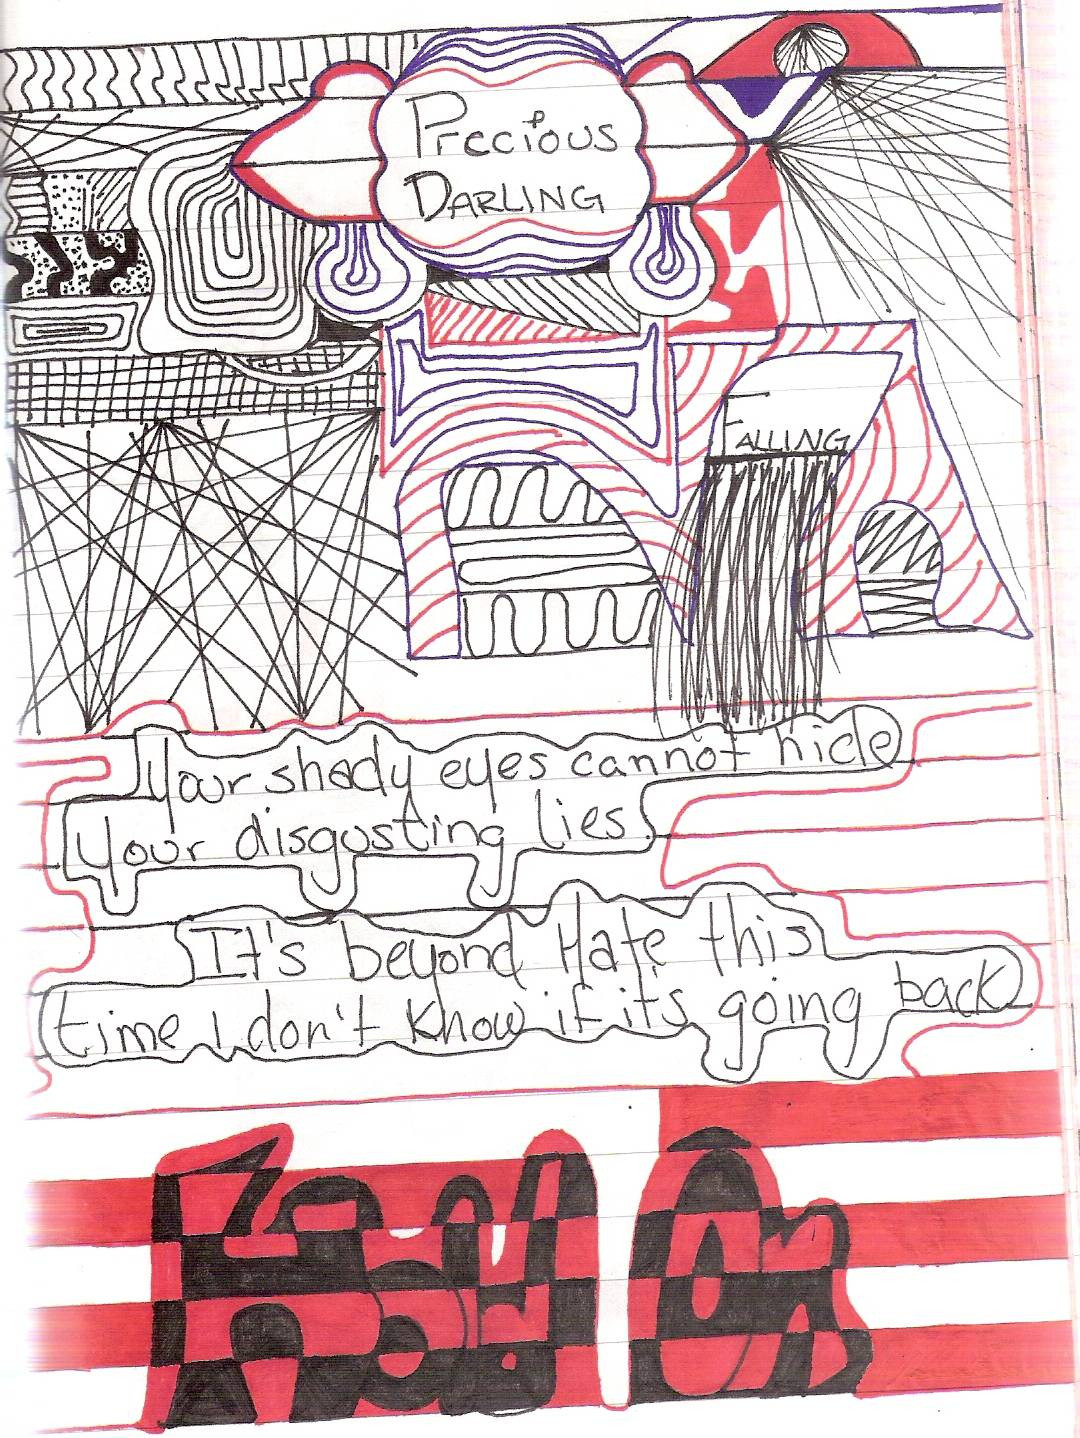 Precious
DARLING
FALLING
Your shady eyes cannot hide
Your disgusting lies.
It's beyond Hate this
time I don't know if it's going back
Hold On